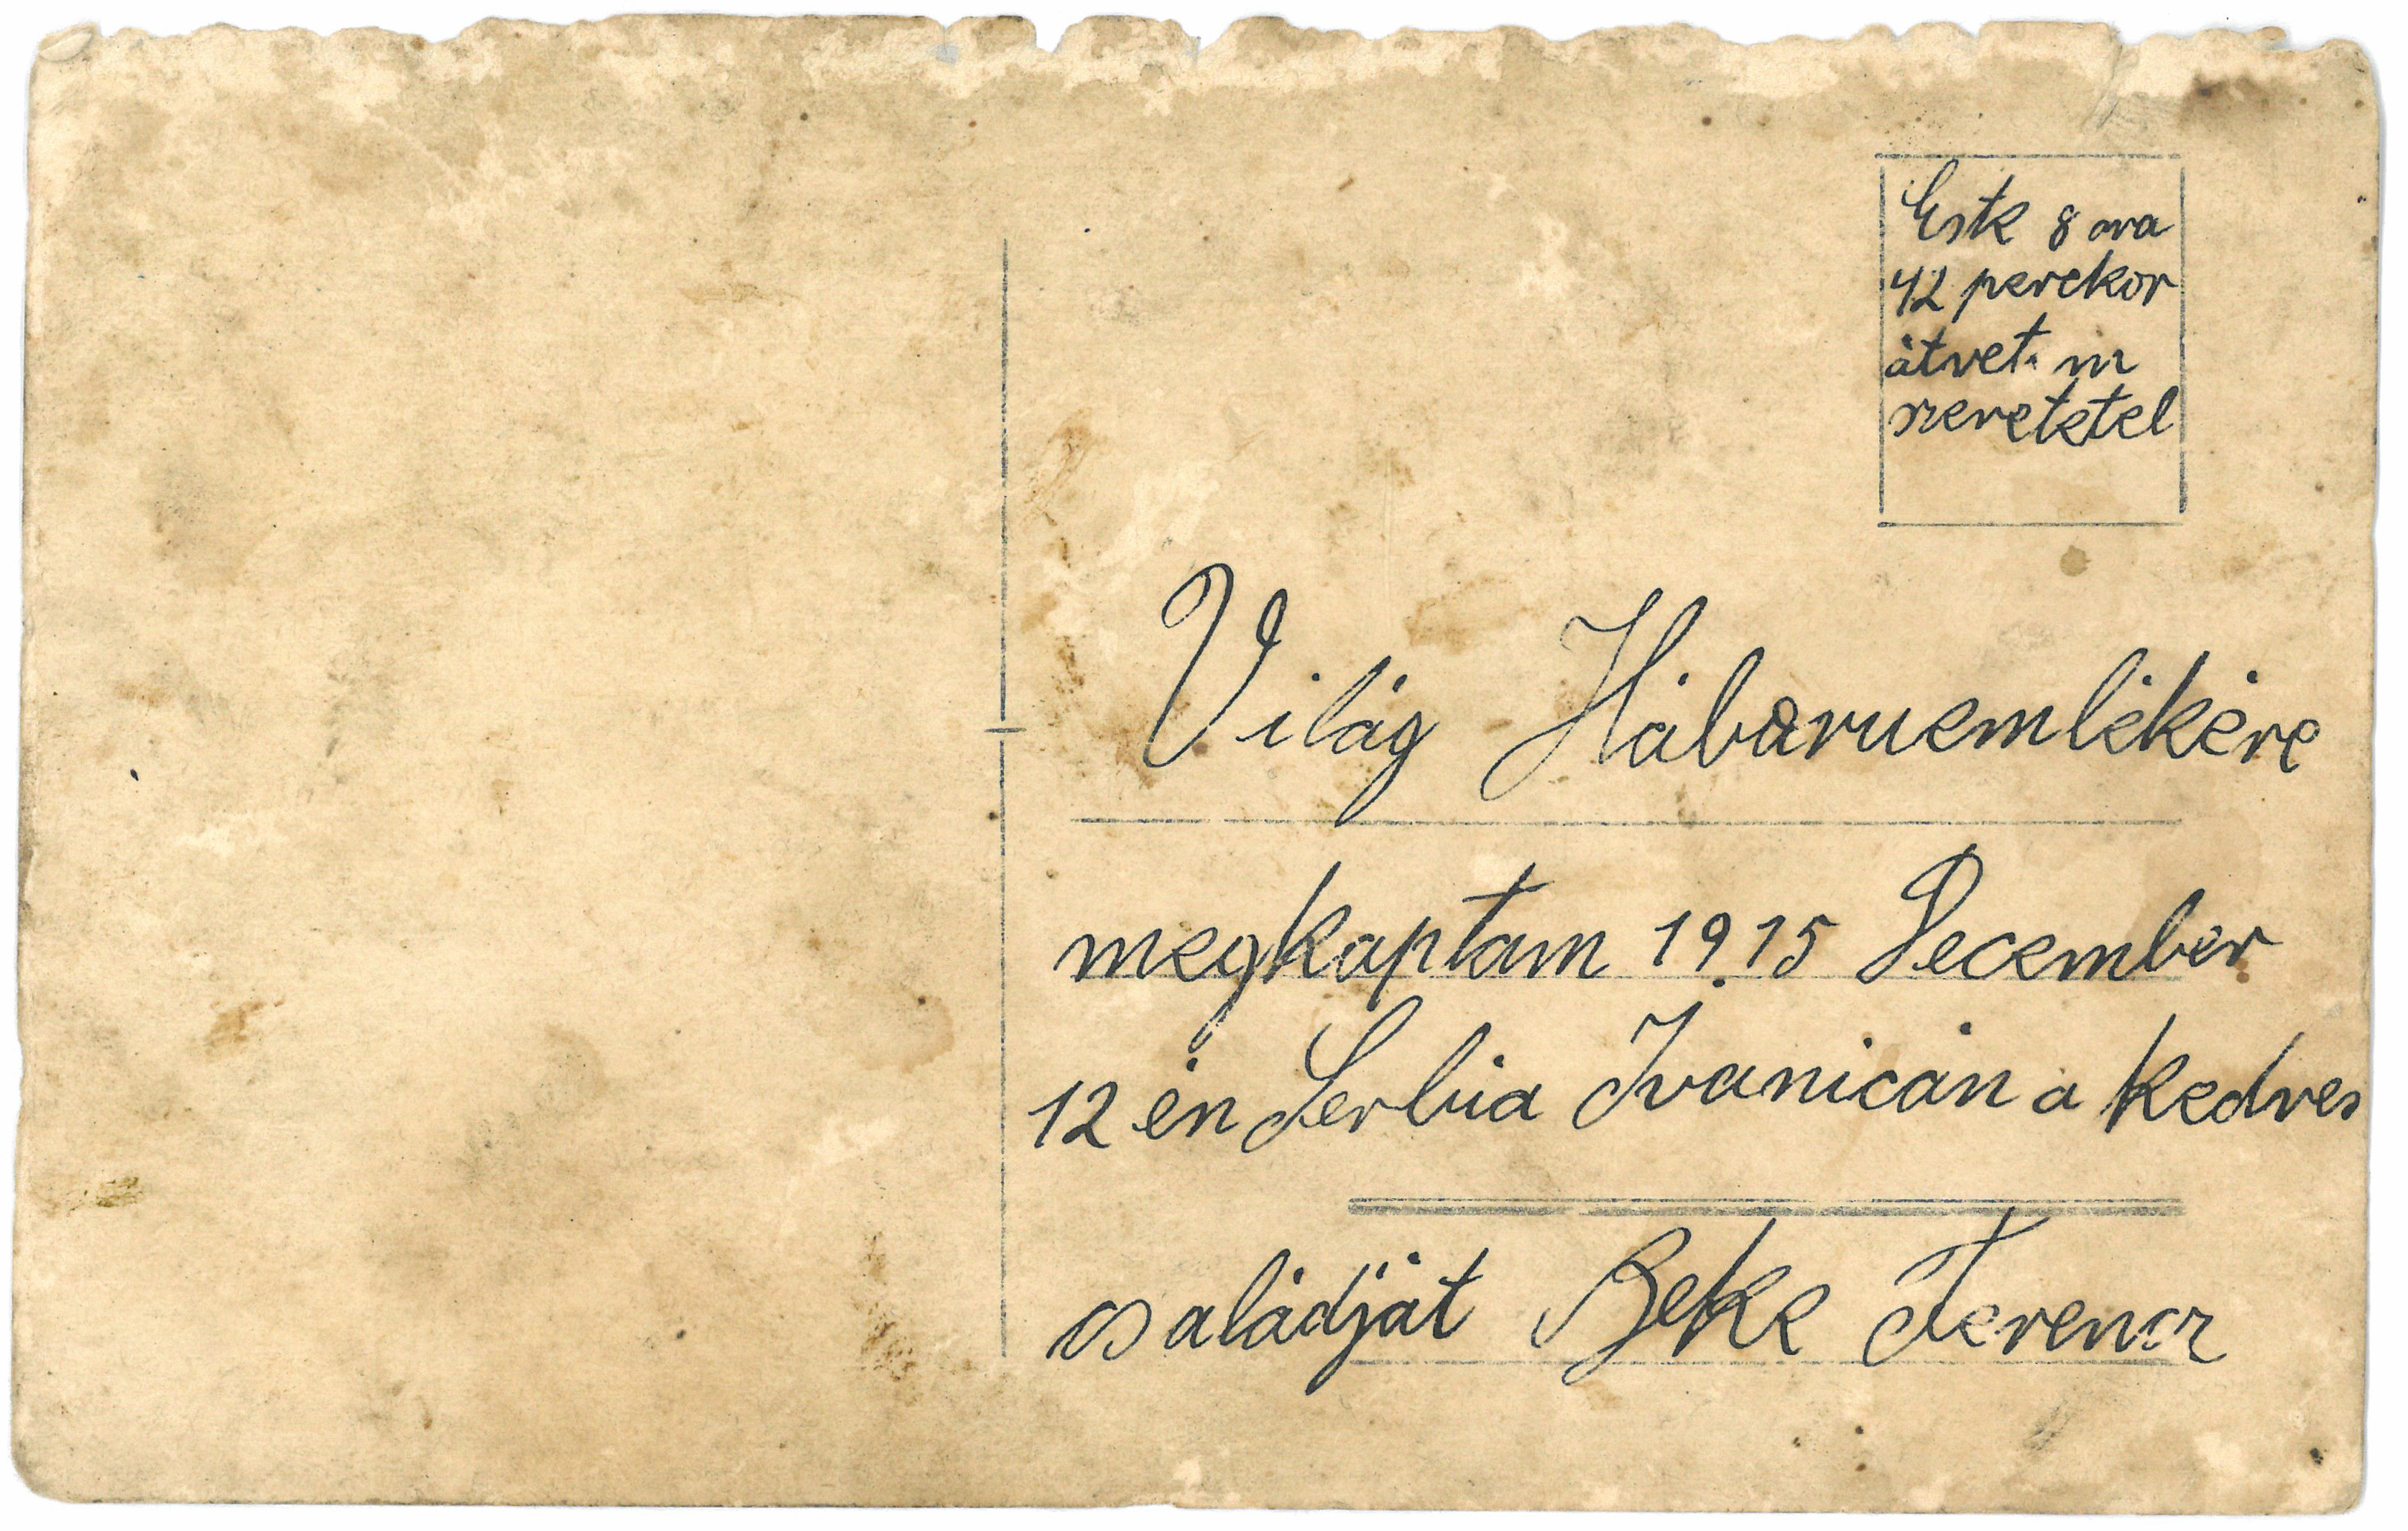 Estk 8 ora
42 perckor
átvet. m
szeretetel
Világ Háboruemlékére
megkaptam 1915 December
12 én Serbia Ivanicán a kedves
családját Beke Ferencz